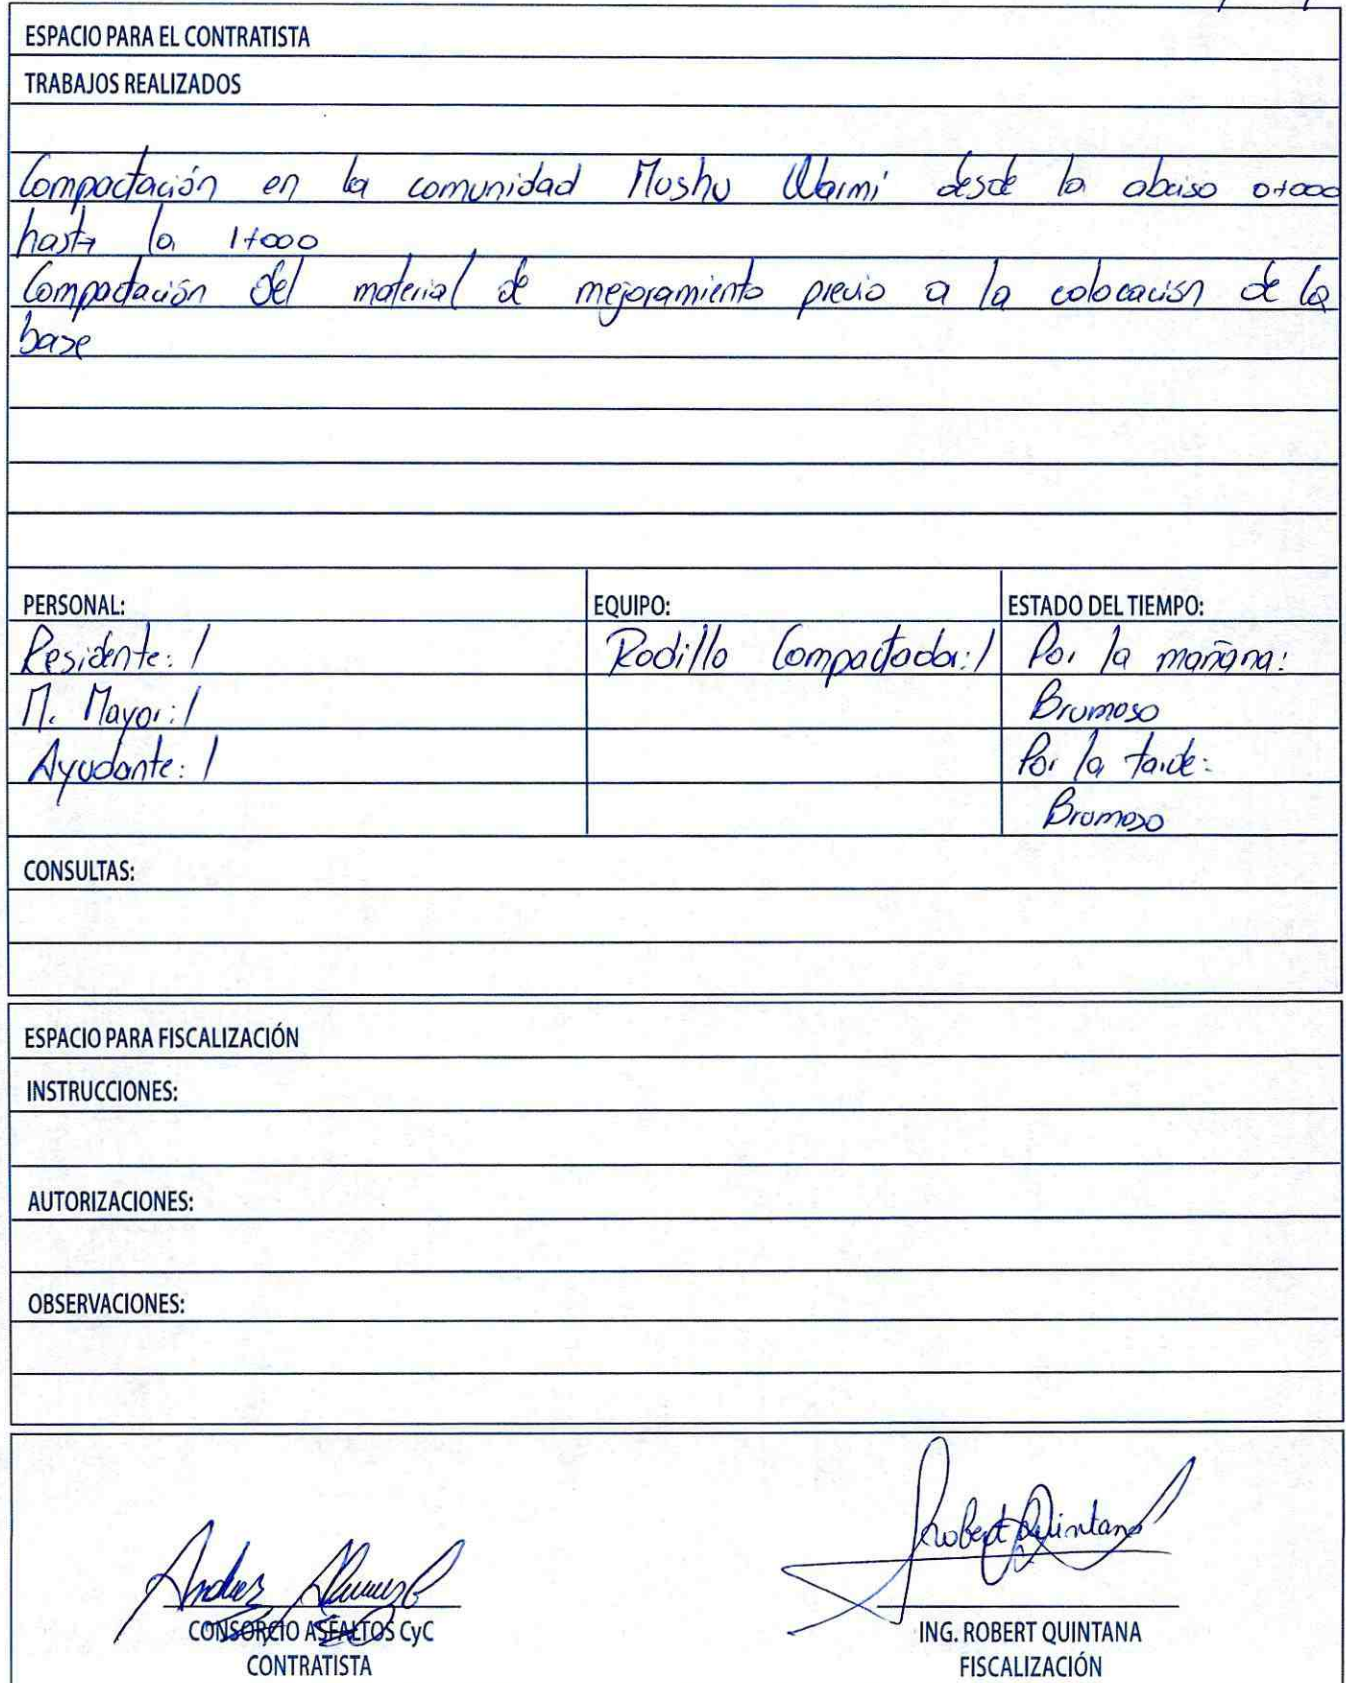 ESPACIO PARA EL CONTRATISTA
TRABAJOS REALIZADOS
Compactación en la comunidad Mushu Warmi desde la abciso 0+000
hasta la 1+000
Compactacion del material de mejoramiento previo a la colocacion de la
base
PERSONAL:
EQUIPO:
ESTADO DEL TIEMPO:
Residente: 1
Rodillo Compactador: 1
Por la mañana:
M. Mayor: 1
Brumoso
Ayudante: 1
Por la tarde:
Brumoso
CONSULTAS:
ESPACIO PARA FISCALIZACIÓN
INSTRUCCIONES:
AUTORIZACIONES:
OBSERVACIONES:
Robert Quintana
Andres
CONSORCIO ASFALTOS CyC
CONTRATISTA
ING. ROBERT QUINTANA
FISCALIZACIÓN